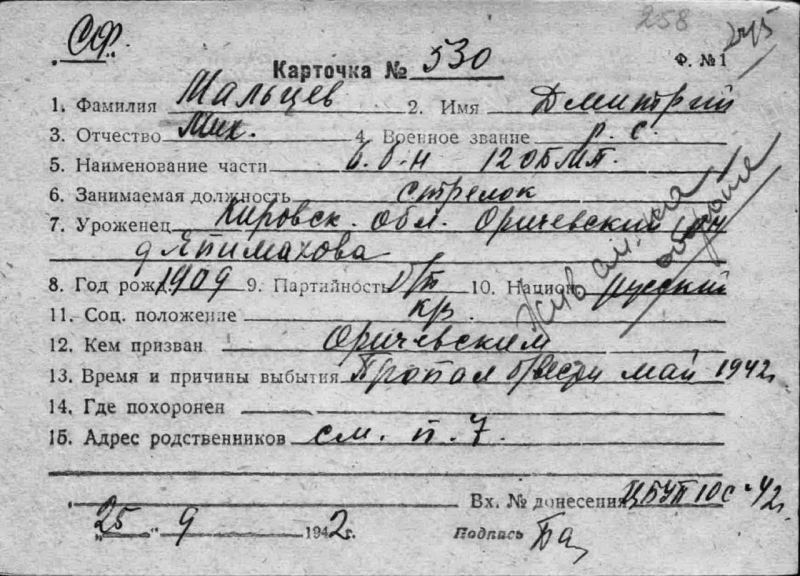 258
СФ.
Карточка № 530
Ф. №1
1. Фамилия Мальцев 2. Имя Дмитрий
3. Отчество Мих. 4. Военное звание р. с.
5. Наименование части 12 ОБМП.
6. Занимаемая должность стрелок
7. Уроженец Кировск. обл. Оричевский
д Япимахова
8. Год рожд. 1909 9. Партийность б/п 10. Национ. русский
11. Соц. положение кр
12. Кем призван Оричевским
13. Время и причины выбытия Пропал б/вести май 1942г
14. Где похоронен
15. Адрес родственников см. п. 7.
Вх. № донесения ЦБУП 10с-42г.
„25" 9 1942г. Подпись
Жив
на
обороте